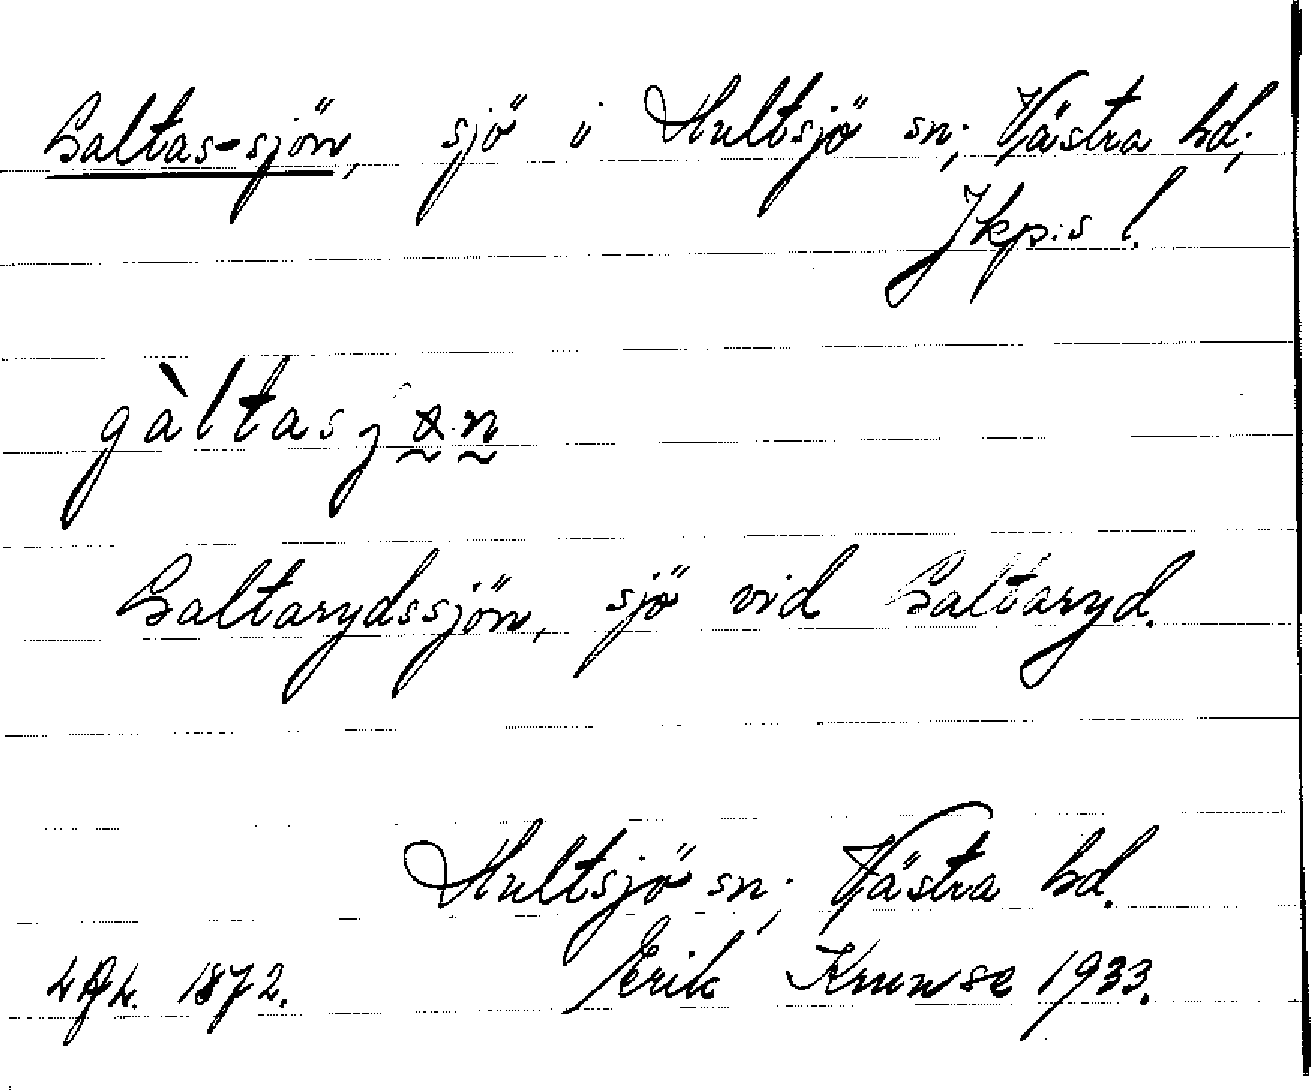 Galtas-sjön, sjö i Hultsjö sn; Västra hd;
Jkp:s l.
gàltasjøn
Galtarydssjön, sjö vid Galtaryd.
Hultsjö sn; Västra hd.
1872. Erik Kruuse 1933.